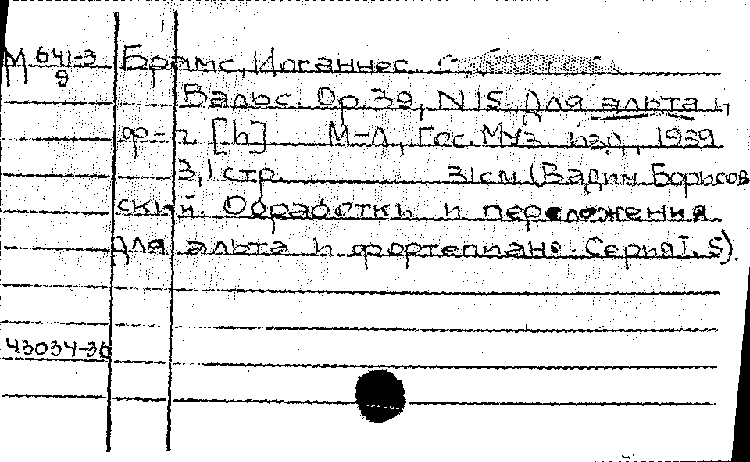 М 641-3
9
Брамс, Иоганнес.
Вальс. Op. 39, N 15. Для альта и
ф-п. [h] М-Л, Гос. Муз. изд., 1939
3,1 стр. 31 см. (Вадим Борисов
ский. Обработки и переложения
для альта и фортепиано. Серия I, 5).
43034-36